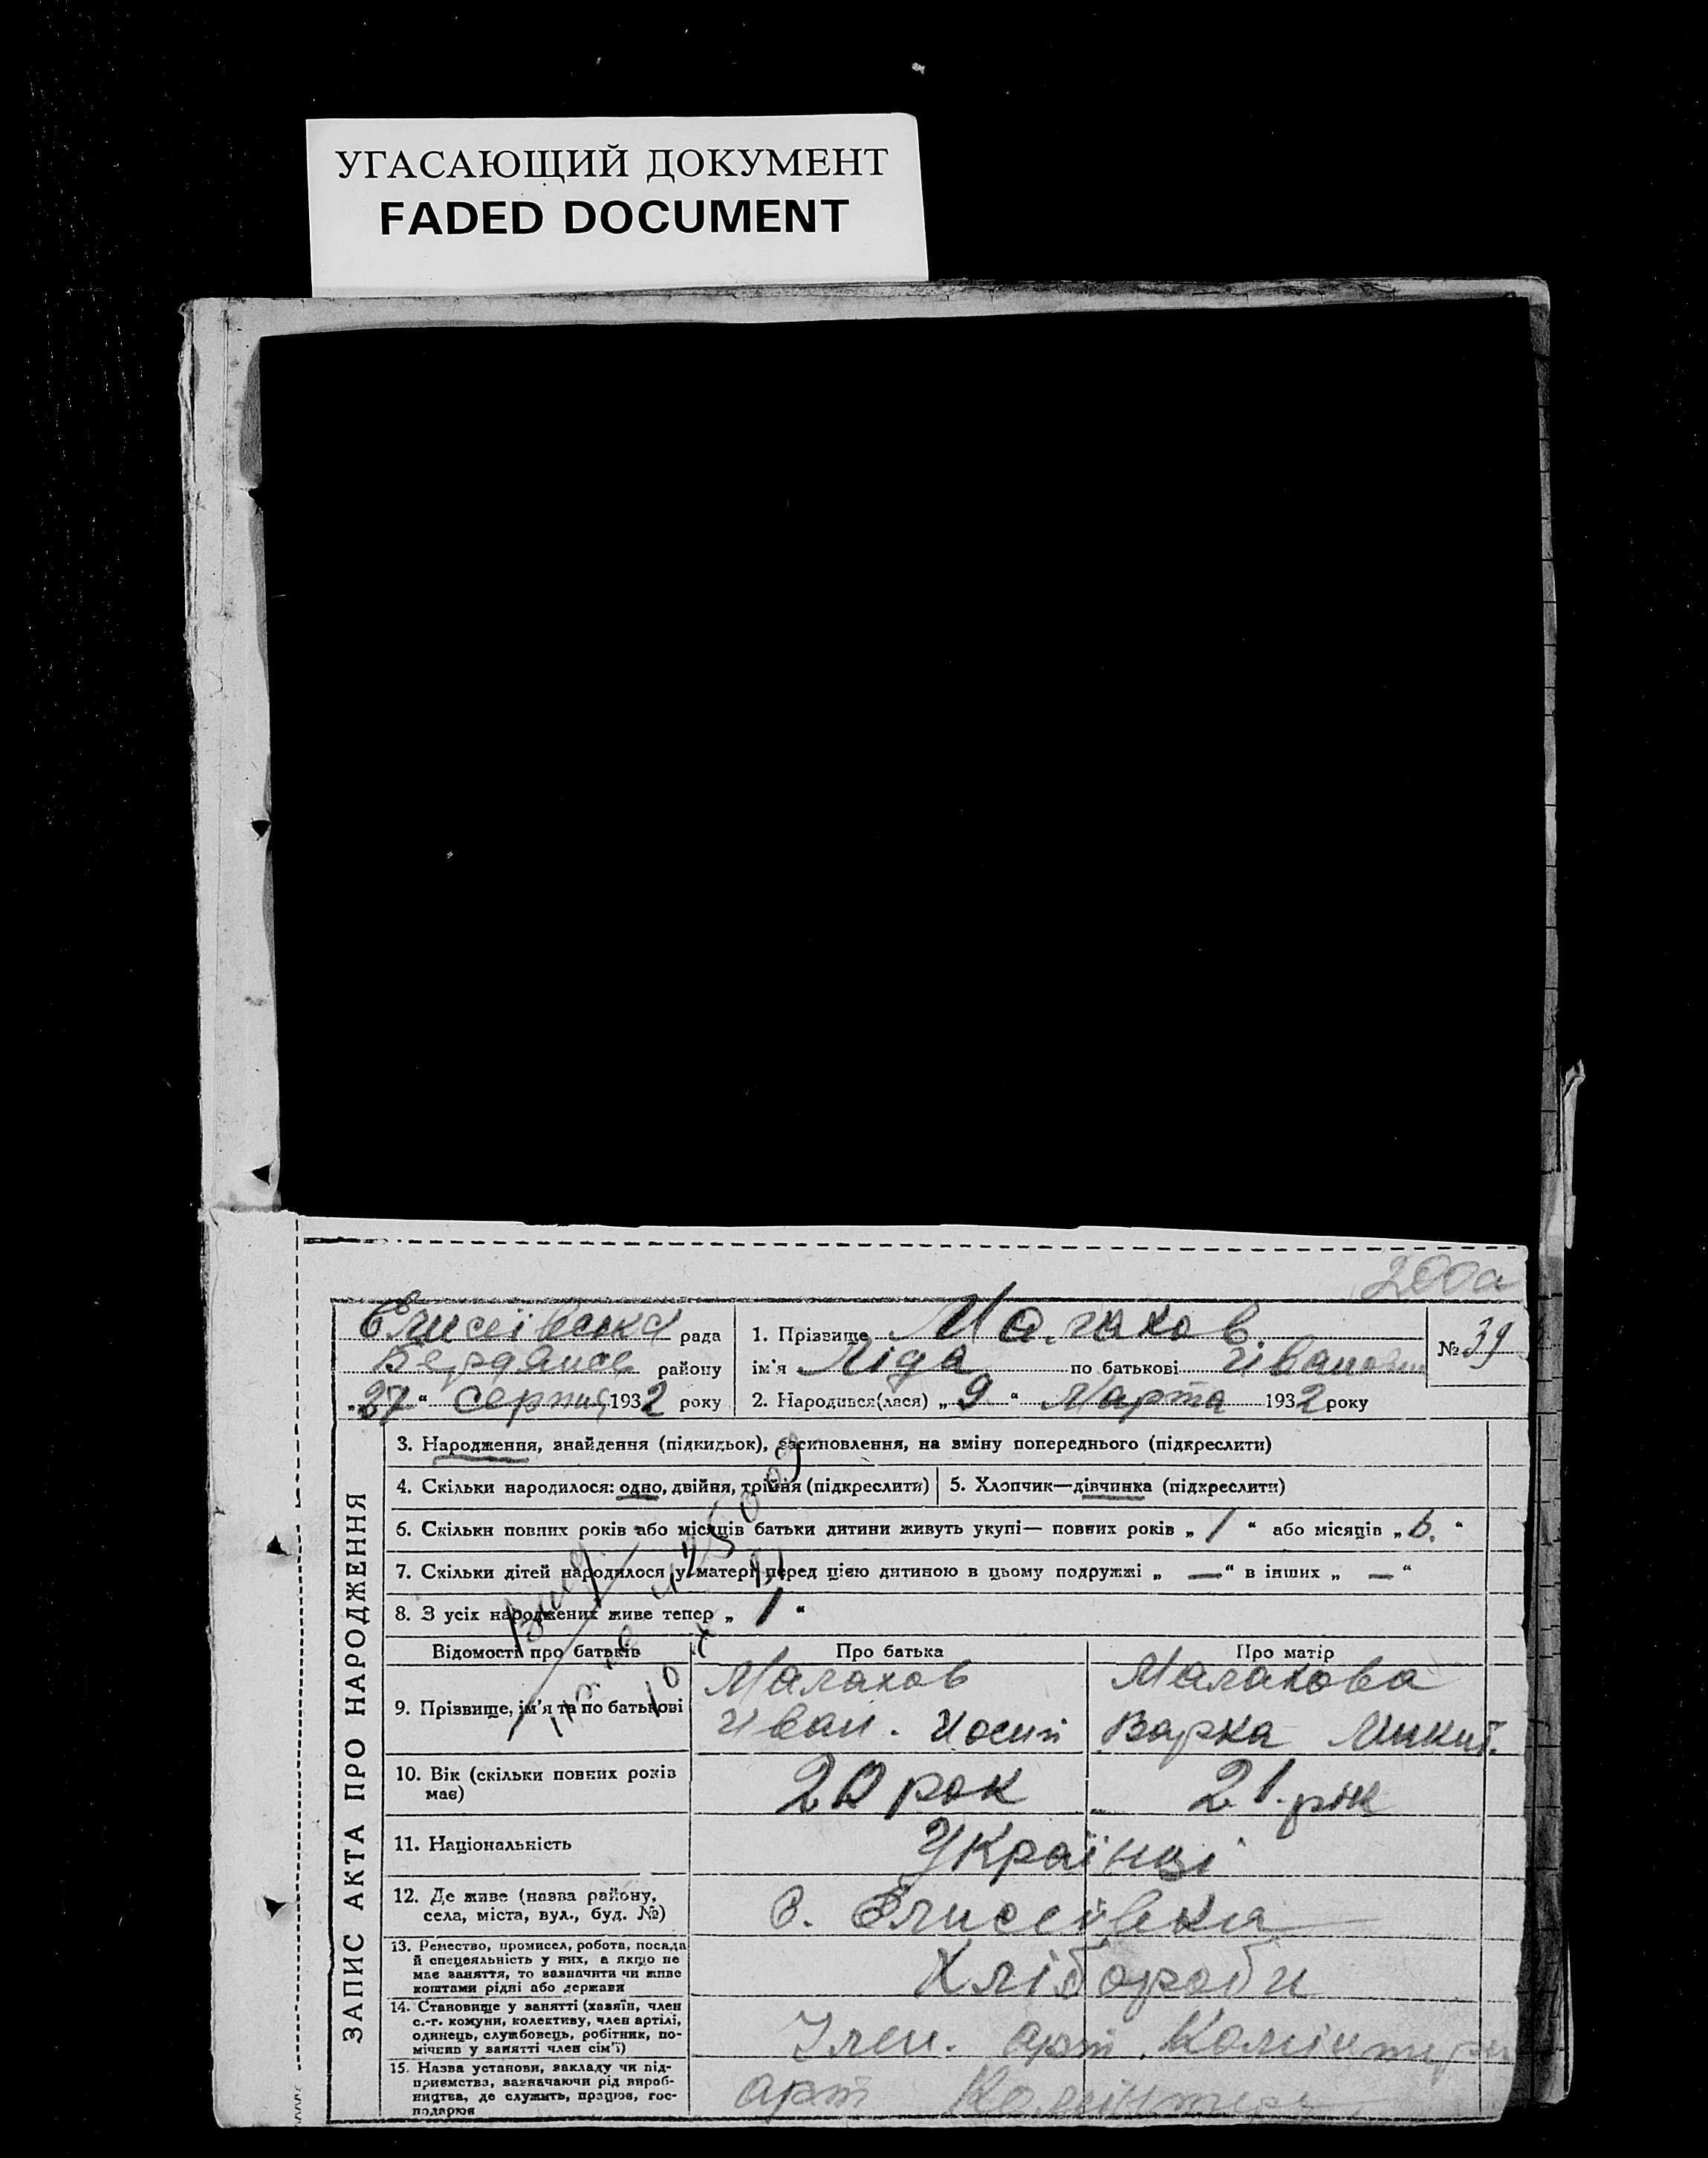 УГАСАЮЩИЙ ДОКУМЕНТ
FADED DOCUMENT
200а
Єлисеівська рада
Бердянськ району
„27“ серпня 1932 року
1. Прізвище Малахов
ім'я Ліда по батькові Іванов
2. Народився(лася) „9“ Марта 1932 року
№ 39
ЗАПИС АКТА ПРО НАРОДЖЕННЯ
3. Народження, знайдення (підкидьок), засиновлення, на зміну попереднього (підкреслити)
4. Скільки народилося: одно, двійня, трійня (підкреслити)
5. Хлопчик—дівчинка (підкреслити)
6. Скільки повних років або місяців батьки дитини живуть укупі— повних років „1“ або місяців „6.“
7. Скільки дітей народилося у матері перед цією дитиною в цьому подружжі „—“ в інших „—“
8. З усіх народжених живе тепер „1“
Відомості про батьків
Про батька
Про матір
9. Прізвище, ім'я та по батькові
Малахов
Іван. Йосип
Малахова
Варка Микит.
10. Вік (скільки повних років
має)
20 рок
21. рік
11. Національність
Українці
12. Де живе (назва району,
села, міста, вул., буд. №)
с. Єлисеівка
13. Ремество, промисел, робота, посада
й спецеяльність у них, а якщо не
має заняття, то зазначити чи живе
коштами рідні або держави
Хлібороби
14. Становище у занятті (хазяїн, член
с.-г. комуни, колективу, член артілі,
одинець, службовець, робітник, по-
мічник у занятті член сім'ї)
Член. арт. Комінтерн
15. Назва установи, закладу чи під-
приємства, зазначаючи рід вироб-
ництва, де служить, працює, гос-
подарює
арт Комінтерн